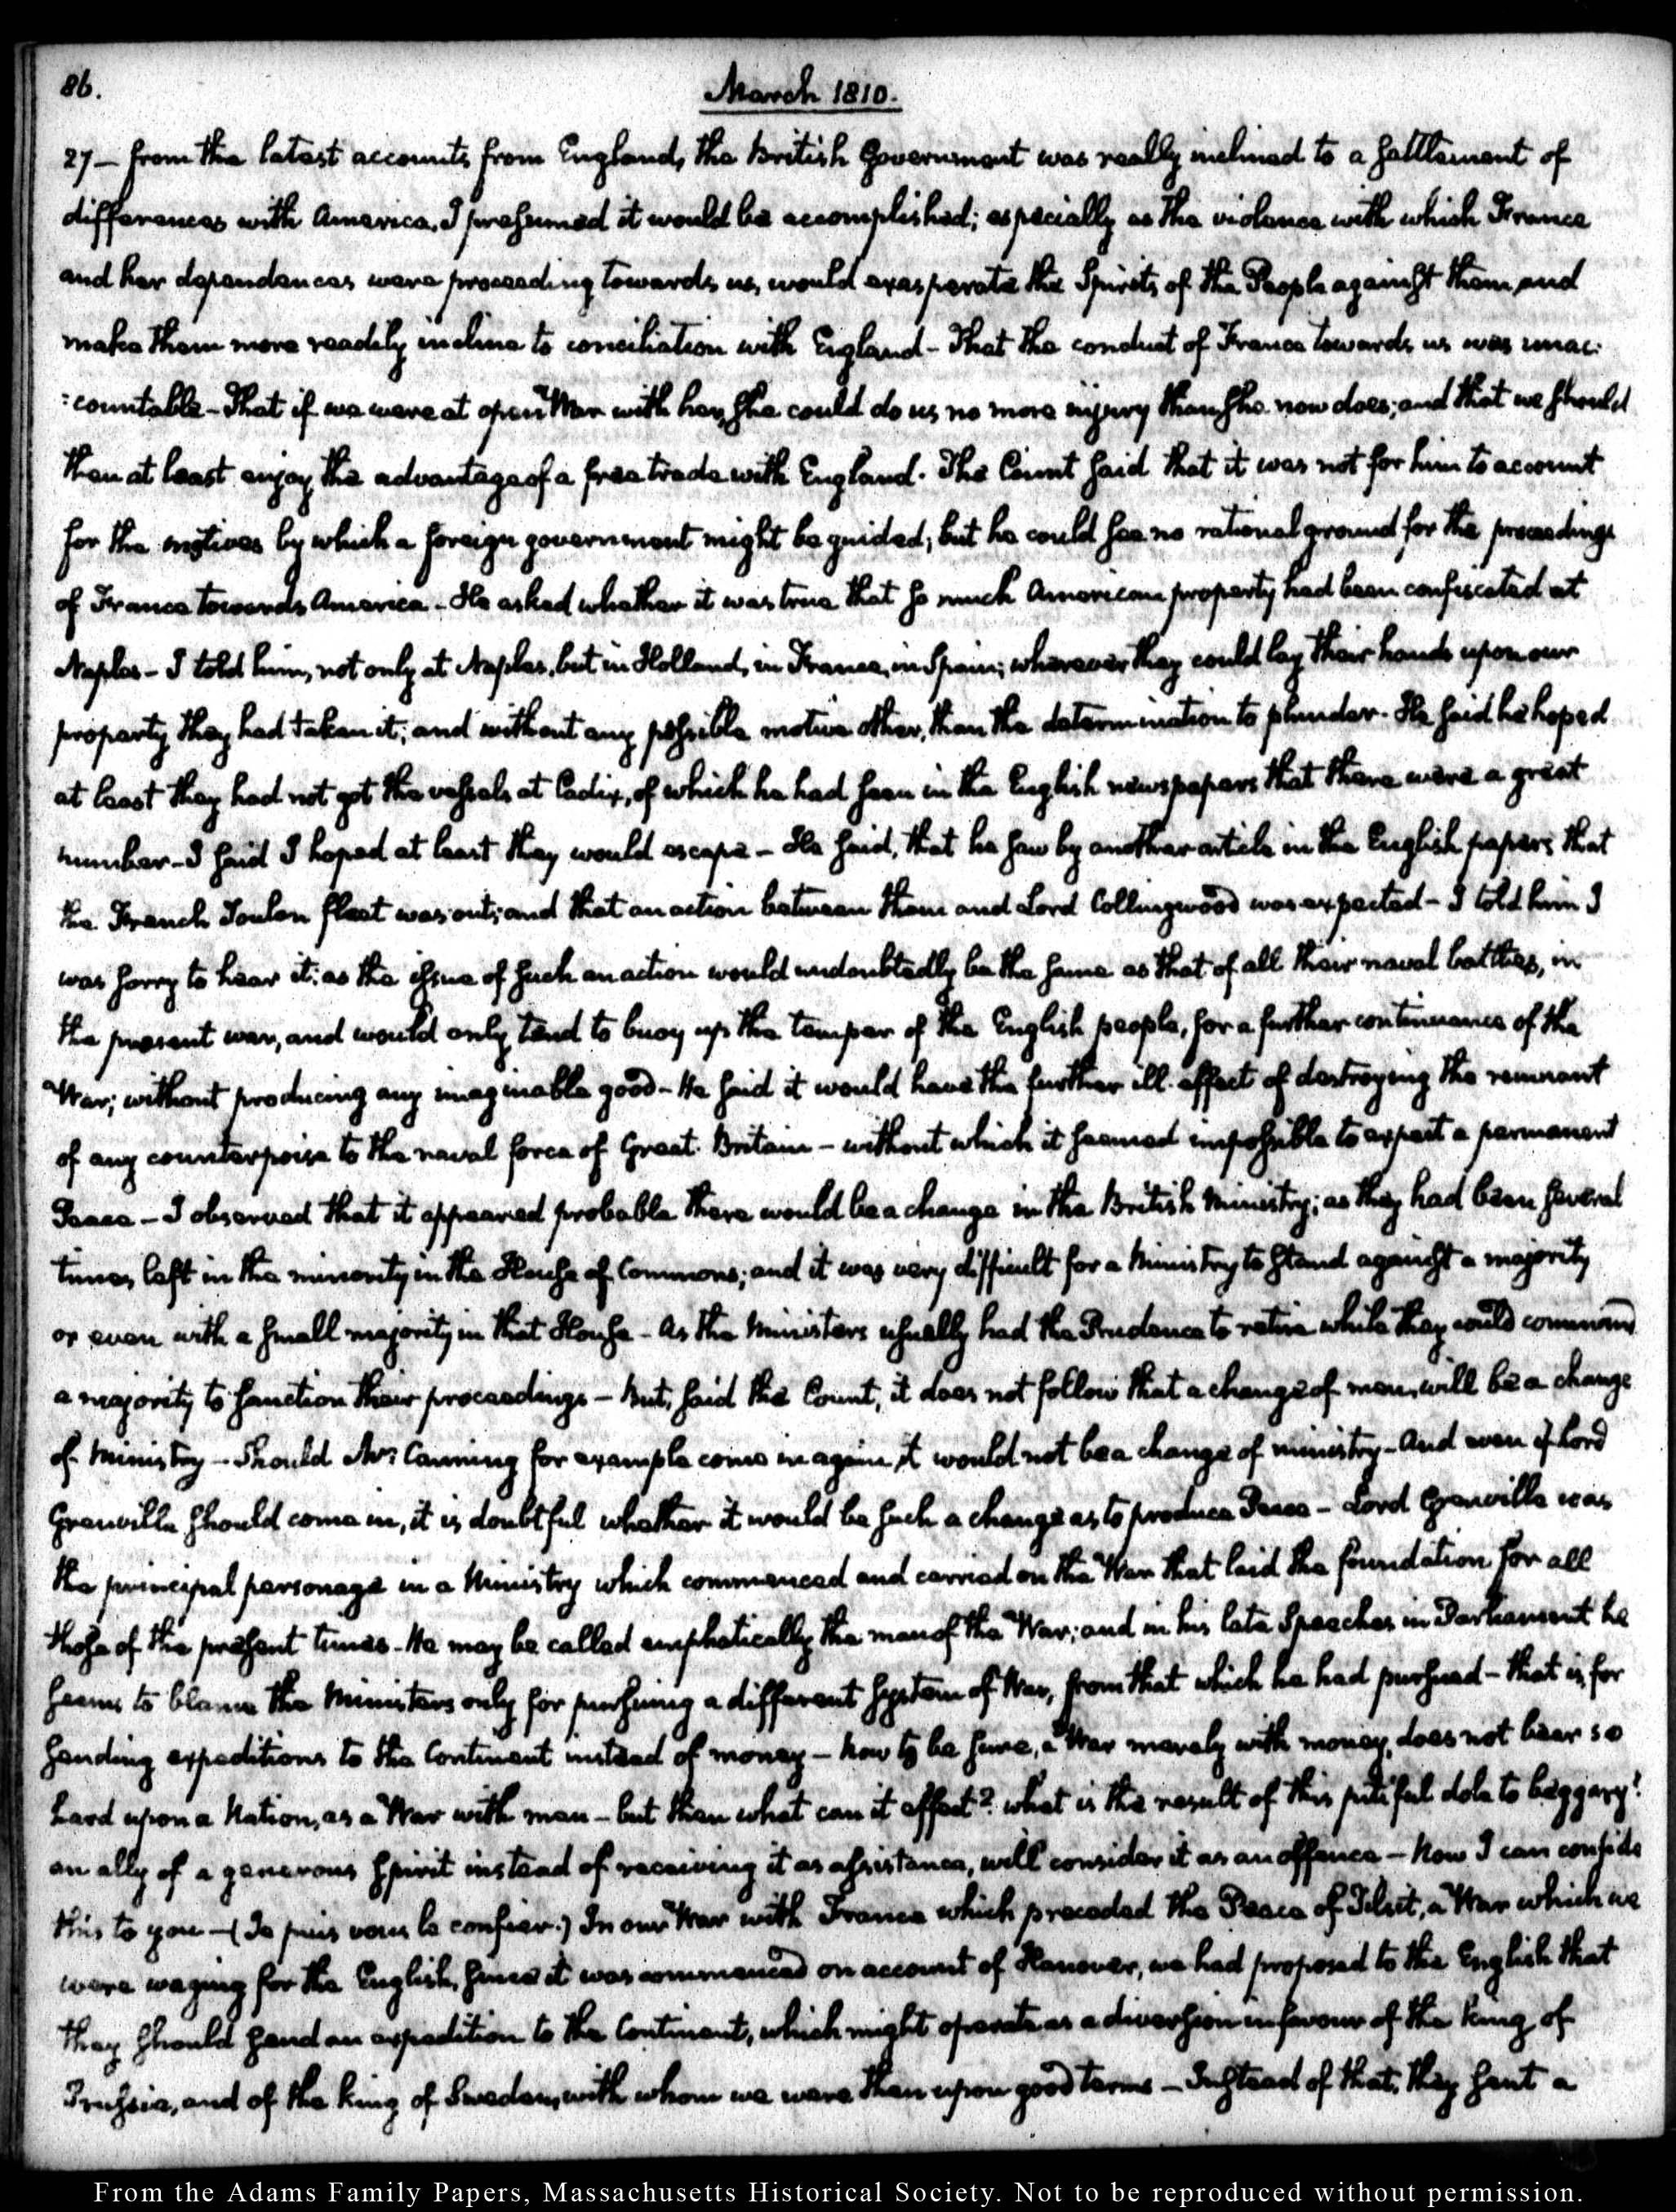 86.
March 1810.
27 - from the latest accounts from England, the British Government was really inclined to a settlement of
differences with America, I presumed it would be accomplished; especially as the violence with which France
and her dependances were proceeding towards us, would exasperate the Spirits of the People against them, and
make them more readily incline to conciliation with England - That the conduct of France towards us was unac:
:countable - That if we were at open War with her, she could do us no more injury than she now does; and that we should
then at least enjoy the advantage of a free trade with England. The Count said that it was not for him to account
for the motives by which a foreign government might be guided; but he could see no rational ground for the proceedings
of France towards America - He asked whether it was true that so much American property had been confiscated at
Naples - I told him, not only at Naples, but in Holland, in France, in Spain; wherever they could lay their hands upon our
property they had taken it; and without any possible motive other, than the determination to plunder. He said he hoped
at least they had not got the vessels at Cadix, of which he had seen in the English newspapers that there were a great
number - I said I hoped at least they would escape - He said, that he saw by another article in the English papers that
the French Toulon fleet was out; and that an action between them and Lord Collingwood was expected - I told him I
was sorry to hear it: as the issue of such an action would undoubtedly be the same as that of all their naval battles, in
the present war, and would only tend to buoy up the temper of the English people, for a further continuance of the
War; without producing any imaginable good - He said it would have the further ill effect of destroying the remnant
of any counterpoise to the naval force of Great Britain - without which it seemed impossible to expect a permanent
Peace - I observed that it appeared probable there would be a change in the British Ministry; as they had been several
times left in the minority in the House of Commons; and it was very difficult for a Ministry to stand against a majority
or even with a small majority in that House - As the Ministers usually had the Prudence to retire while they could command
a majority to sanction their proceedings - But, said the Count, it does not follow that a change of men, will be a change
of Ministry - Should Mr: Canning for example come in again, it would not be a change of ministry - And even if Lord
Grenville should come in, it is doubtful whether it would be such a change as to produce Peace - Lord Grenville was
the principal personage in a Ministry which commenced and carried on the War that laid the foundation for all
those of the present times - He may be called emphatically the man of the War; and in his late Speeches in Parliament he
seems to blame the Ministers only for pursuing a different system of War, from that which he had pursued - that is, for
sending expeditions to the Continent instead of money - Now to be sure, a War merely with money, does not bear so
hard upon a Nation, as a War with men - but then what can it effect? what is the result of this pitiful dole to beggary?
an ally of a generous spirit instead of receiving it as assistance, will consider it as an offence - Now I can confide
this to you - (Je puis vous le confier.) In our War with France which preceded the Peace of Tilsit, a War which we
were waging for the English, since it was commenced on account of Hanover, we had proposed to the English that
they should send an expedition to the Continent, which might operate as a diversion in favour of the king of
Prussia, and of the king of Sweden, with whom we were then upon good terms - Instead of that, they sent a
From the Adams Family Papers, Massachusetts Historical Society. Not to be reproduced without permission.